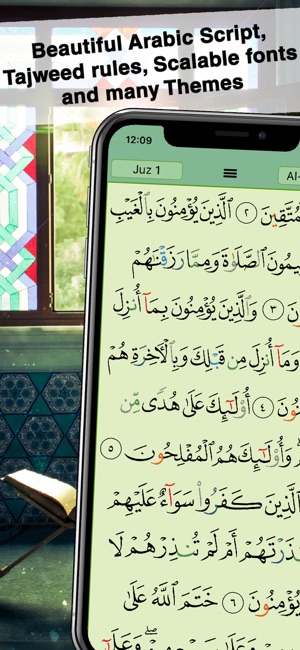 Beautiful Arabic Script,
Tajweed rules, Scalable fonts
and many Themes
12:09
Juz 1
Al-
ٱلَّذِينَ يُؤْمِنُونَ بِٱلْغَيْبِ ٢
ٱلصَّلَوٰةَ وَمِمَّا رَزَقْنَٰهُمْ
وَٱلَّذِينَ يُؤْمِنُونَ بِمَآ أُنزِلَ ٣
وَمَآ أُنزِلَ مِن قَبْلِكَ وَبِٱلْءَاخِرَةِ هُمْ
أُو۟لَٰٓئِكَ عَلَىٰ هُدًى مِّن ٤
وَأُو۟لَٰٓئِكَ هُمُ ٱلْمُفْلِحُونَ ٥
ٱلَّذِينَ كَفَرُوا۟ سَوَآءٌ عَلَيْهِمْ
أَمْ لَمْ تُنذِرْهُمْ لَا
خَتَمَ ٱللَّهُ عَلَىٰ ٦